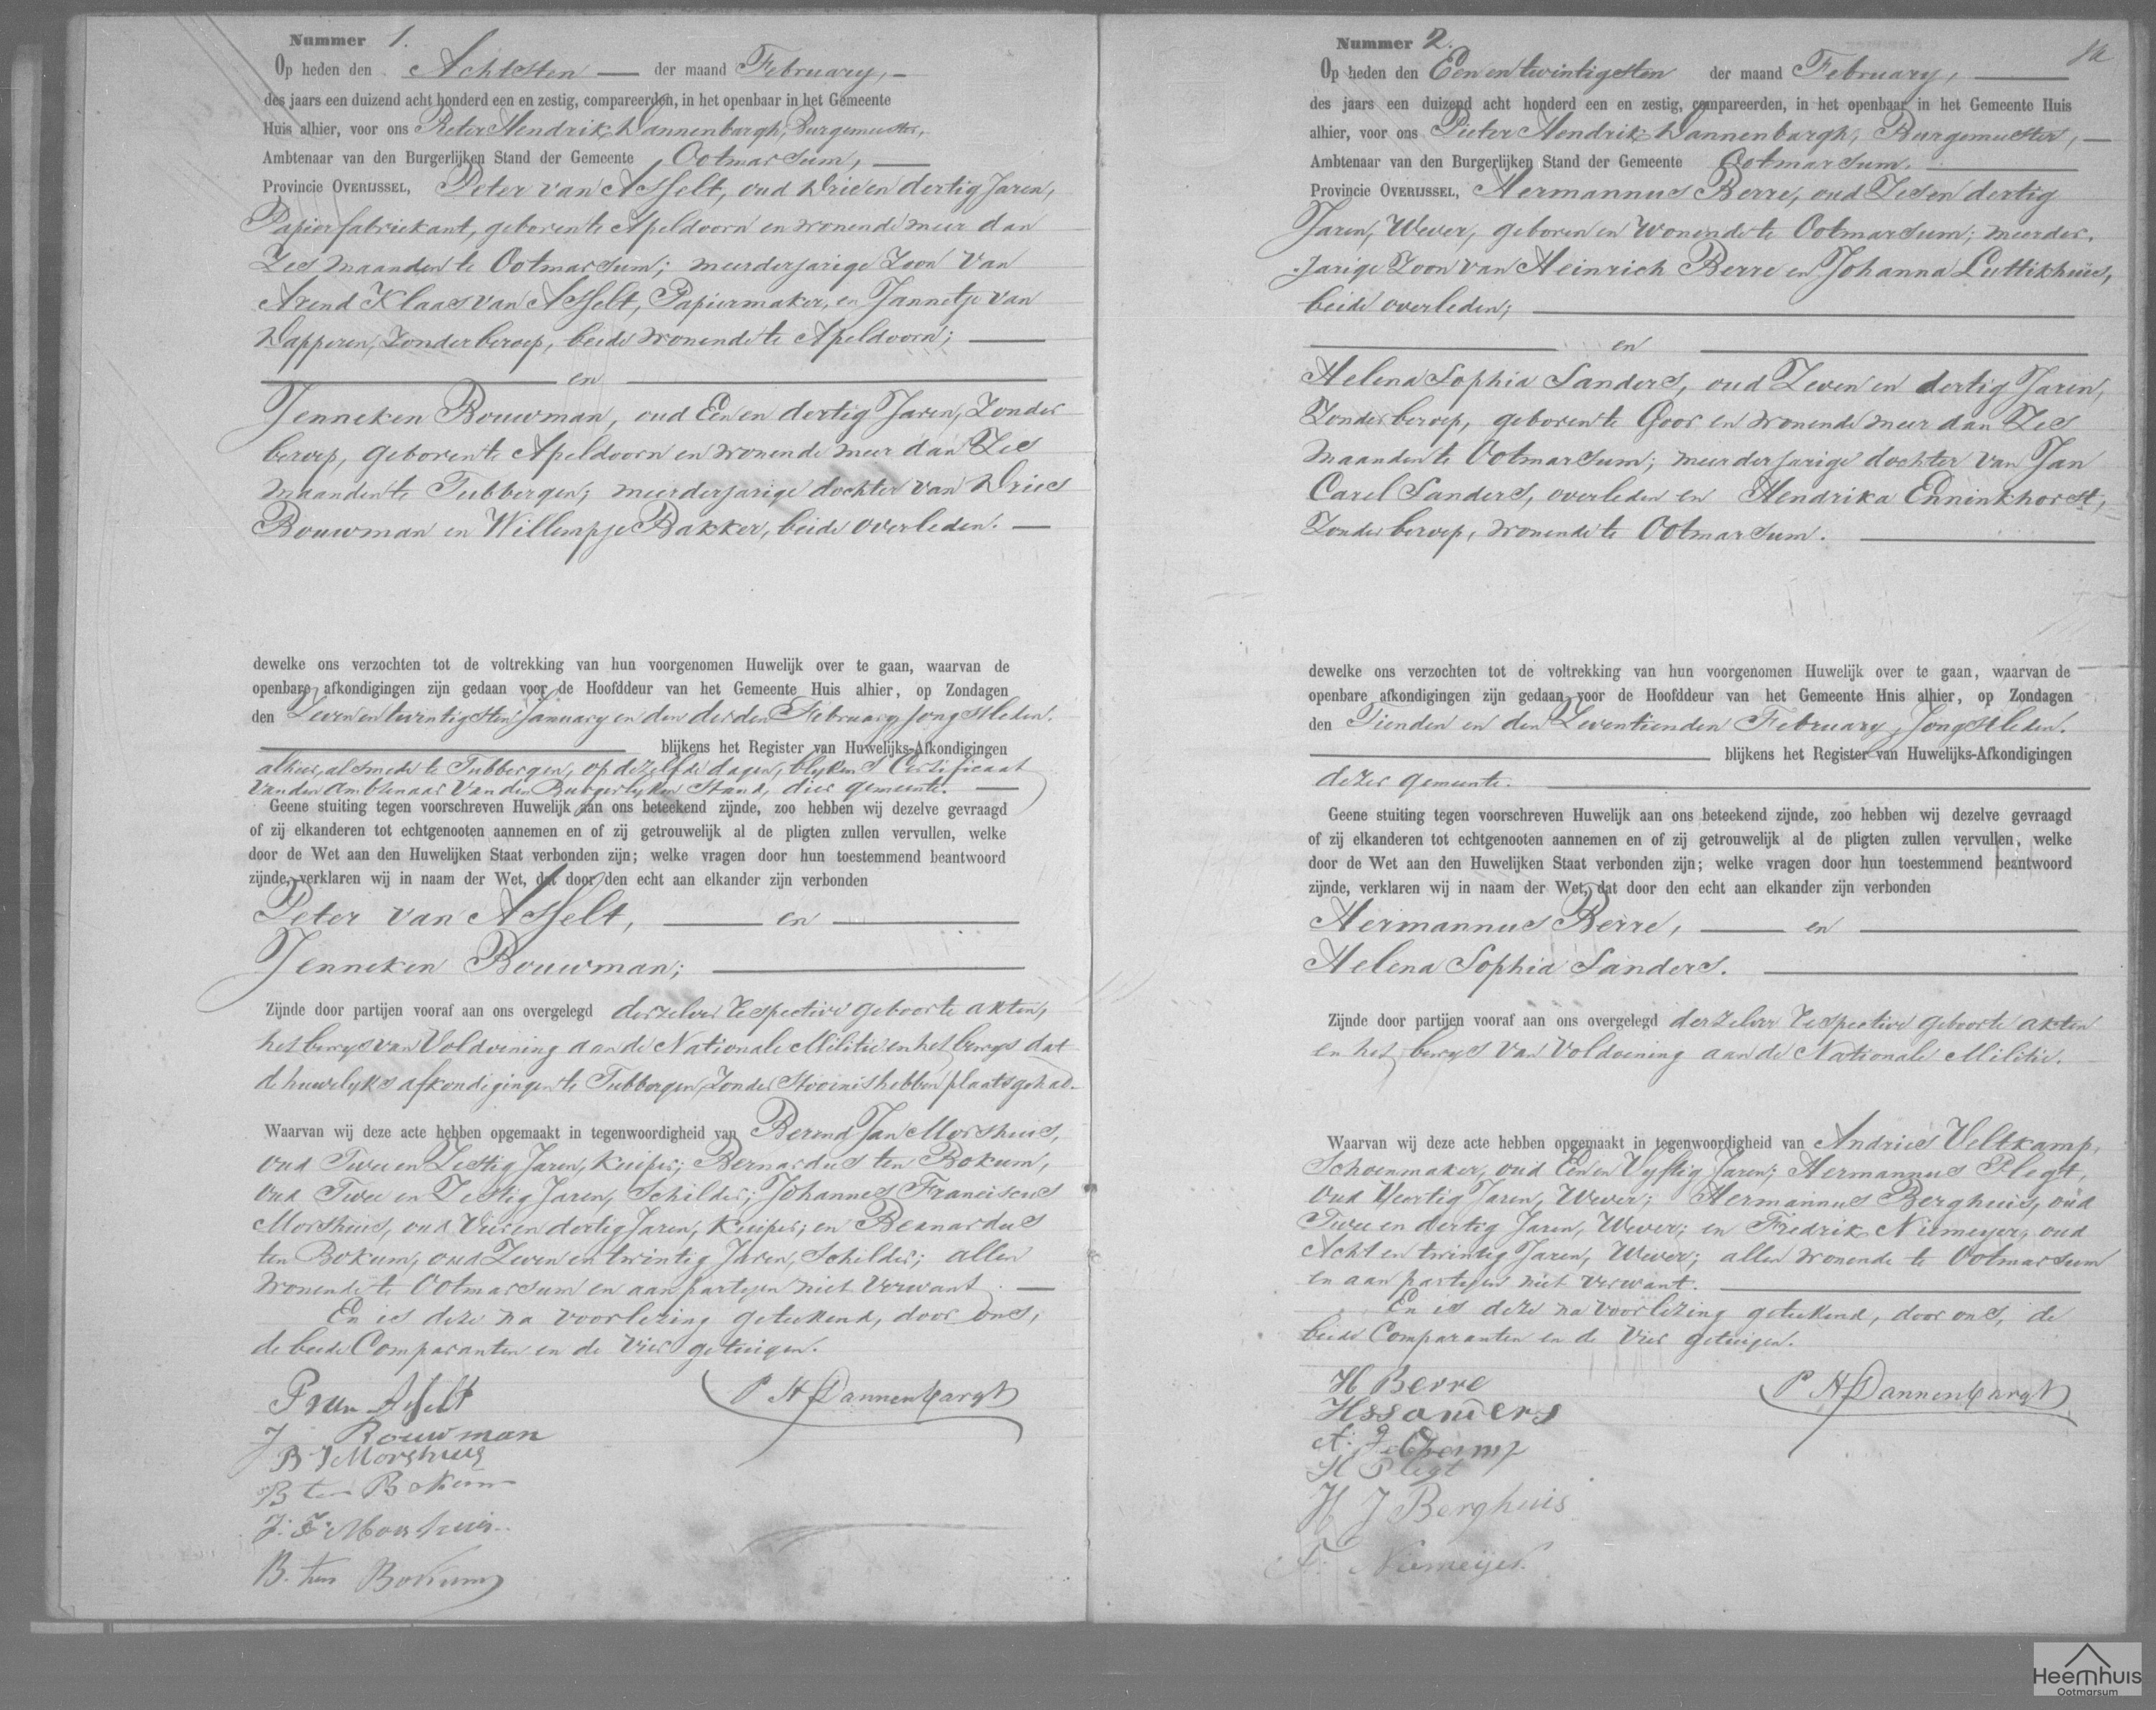 Nummer 1.
Op heden den Achtsten der maand February,
des jaars een duizend acht honderd een en zestig, compareerden, in het openbaar in het Gemeente
Huis alhier, voor ons Pieter Hendrik Dannenbargh, Burgemeester,
Ambtenaar van den Burgerlijken Stand der Gemeente Ootmarsum,
Provincie OVERIJSSEL, Peter van Asselt, oud Drie en dertig Jaren,
Papierfabriekant, geboren te Apeldoorn en wonende meer dan
Zes maanden te Ootmarsum; meerderjarige Zoon van
Arend Klaas van Asselt, Papiermaker, en Jannetje van
Dapperen, Zonder beroep, beide wonende te Apeldoorn;
en
Jenneken Bouwman, oud Een en dertig Jaren, Zonder
beroep, geboren te Apeldoorn en wonende meer dan Zes
maanden te Tubbergen; meerderjarige dochter van Dries
Bouwman en Willempje Bakker, beide overleden.
dewelke ons verzochten tot de voltrekking van hun voorgenomen Huwelijk over te gaan, waarvan de
openbare afkondigingen zijn gedaan voor de Hoofddeur van het Gemeente Huis alhier, op Zondagen
den Zeven en twintigsten January en den derden February jongstleden.
blijkens het Register van Huwelijks-Afkondigingen
alhier, alsmede te Tubbergen, op dezelfde dagen, blykens Certificaat
van den Ambtenaar van den Burgerlyken Stand, dier gemeente.
Geene stuiting tegen voorschreven Huwelijk aan ons beteekend zijnde, zoo hebben wij dezelve gevraagd
of zij elkanderen tot echtgenooten aannemen en of zij getrouwelijk al de pligten zullen vervullen, welke
door de Wet aan den Huwelijken Staat verbonden zijn; welke vragen door hun toestemmend beantwoord
zijnde, verklaren wij in naam der Wet, dat door den echt aan elkander zijn verbonden
Peter van Asselt, en
Jenneken Bouwman;
Zijnde door partijen vooraf aan ons overgelegd derzelver respective geboorte akten,
het bewys van Voldoening aan de Nationale Militie en het bewys dat
de huwelyks afkondigingen te Tubbergen, Zonder Stoornis hebben plaats gehad.
Waarvan wij deze acte hebben opgemaakt in tegenwoordigheid van Berend Jan Morshuis,
oud Twee en Zestig Jaren, Kuiper; Bernardus ten Bokum,
oud Twee en Zestig Jaren, Schilder; Johannes Franciscus
Morshuis, oud Vier en dertig Jaren, Kuiper; en Bernardus
ten Bokum, oud Zeven en twintig Jaren, Schilder; allen
wonende te Ootmarsum en aan partyen niet verwant.
En is deze na voorlezing geteekend, door ons,
de beide Comparanten en de vier getuigen.
P van Asselt
P H Dannenbargh
J Bouwman
B J Morshuis
B ten Bokum
J. F. Morshuis.
B. ten Bokum
Nummer 2.
Op heden den Een en twintigsten der maand February,
des jaars een duizend acht honderd een en zestig, compareerden, in het openbaar in het Gemeente Huis
alhier, voor ons Pieter Hendrik Dannenbargh, Burgemeester,
Ambtenaar van den Burgerlijken Stand der Gemeente Ootmarsum.
Provincie OVERIJSSEL, Hermannus Berre, oud Zes en dertig
Jaren, Wever, geboren en wonende te Ootmarsum; meerder.
jarige Zoon van Heinrich Berre en Johanna Luttikhuis,
beide overleden;
en
Helena Sophia Sanders, oud Zeven en dertig Jaren,
Zonder beroep, geboren te Goor en wonende meer dan Zes
maanden te Ootmarsum; meerderjarige dochter van Jan
Carel Sanders, overleden en Hendrika Enninkhorst,
Zonder beroep, wonende te Ootmarsum.
dewelke ons verzochten tot de voltrekking van hun voorgenomen Huwelijk over te gaan, waarvan de
openbare afkondigingen zijn gedaan voor de Hoofddeur van het Gemeente Hnis alhier, op Zondagen
den Tienden en den Zeventienden February, Jongstleden.
blijkens het Register van Huwelijks-Afkondigingen
dezer gemeente.
Geene stuiting tegen voorschreven Huwelijk aan ons beteekend zijnde, zoo hebben wij dezelve gevraagd
of zij elkanderen tot echtgenooten aannemen en of zij getrouwelijk al de pligten zullen vervullen, welke
door de Wet aan den Huwelijken Staat verbonden zijn; welke vragen door hun toestemmend beantwoord
zijnde, verklaren wij in naam der Wet, dat door den echt aan elkander zijn verbonden
Hermannus Berre, en
Helena Sophia Sanders.
Zijnde door partijen vooraf aan ons overgelegd derzelver respective geboorte akten
en het bewys van voldoening aan de Nationale Militie.
Waarvan wij deze acte hebben opgemaakt in tegenwoordigheid van Andries Veltkamp,
Schoenmaker, oud Een en Vyftig Jaren; Hermannus Plegt,
oud Veertig Jaren, Wever; Hermannus Berghuis, oud
Twee en dertig Jaren, Wever; en Fredrik Niemeyer, oud
Acht en twintig Jaren, Wever; allen wonende te Ootmarsum
en aan partyen niet verwant.
En is deze na voorlezing geteekend, door ons, de
beide Comparanten en de vier getuigen.
H Berre
P H Dannenbargh
H s sanders
H Plegt
H J Berghuis
F. Niemeijer.
Heemhuis
Ootmarsum